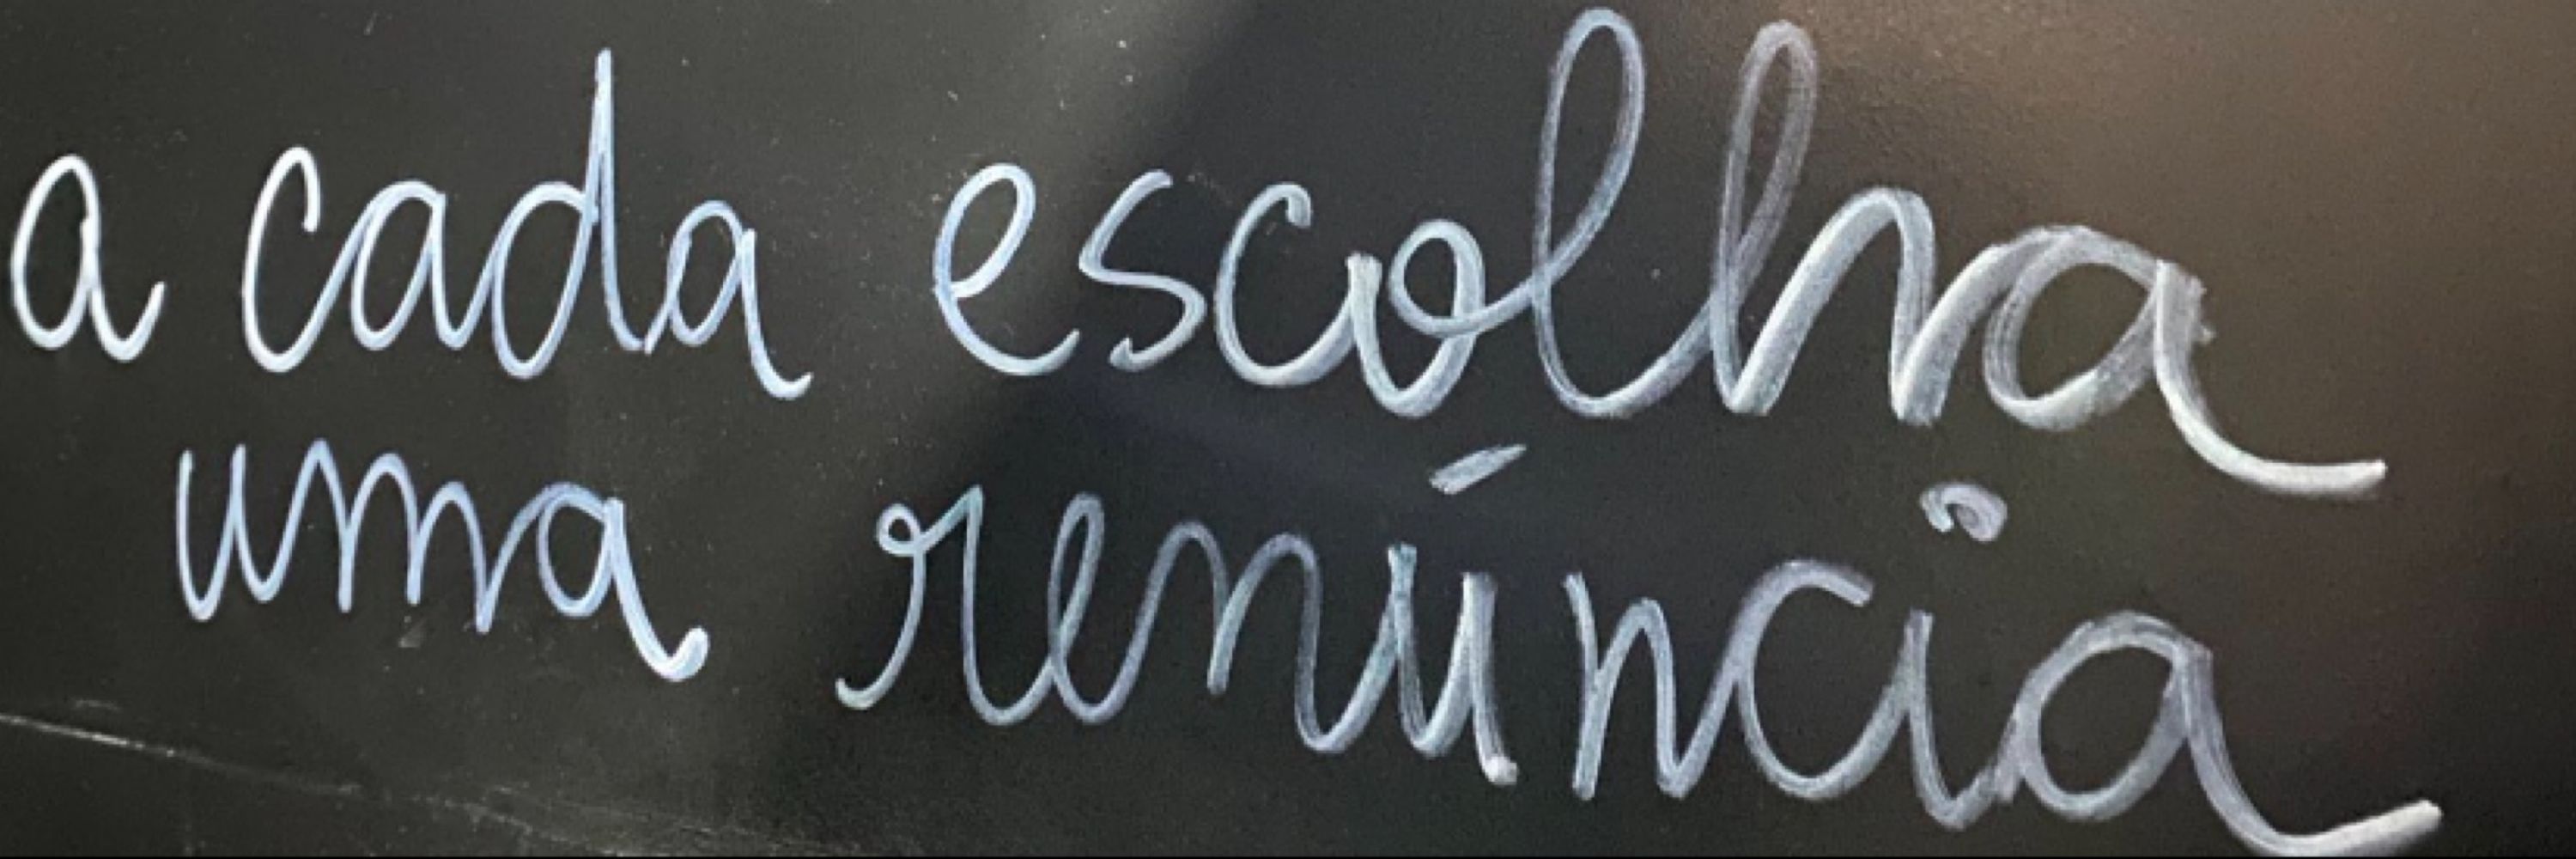 a cada escolha
uma renúncia